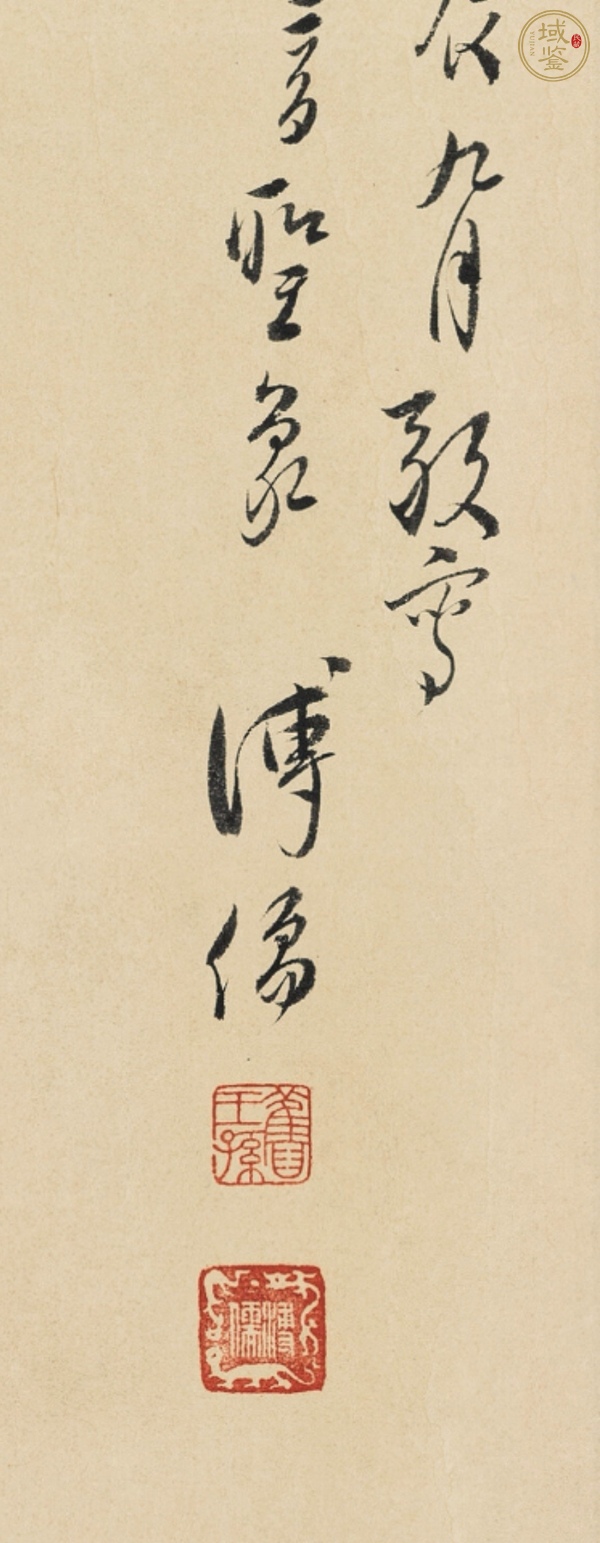 辰九月敬寫
音聖象 溥儒
舊王孫
溥儒
域鉴